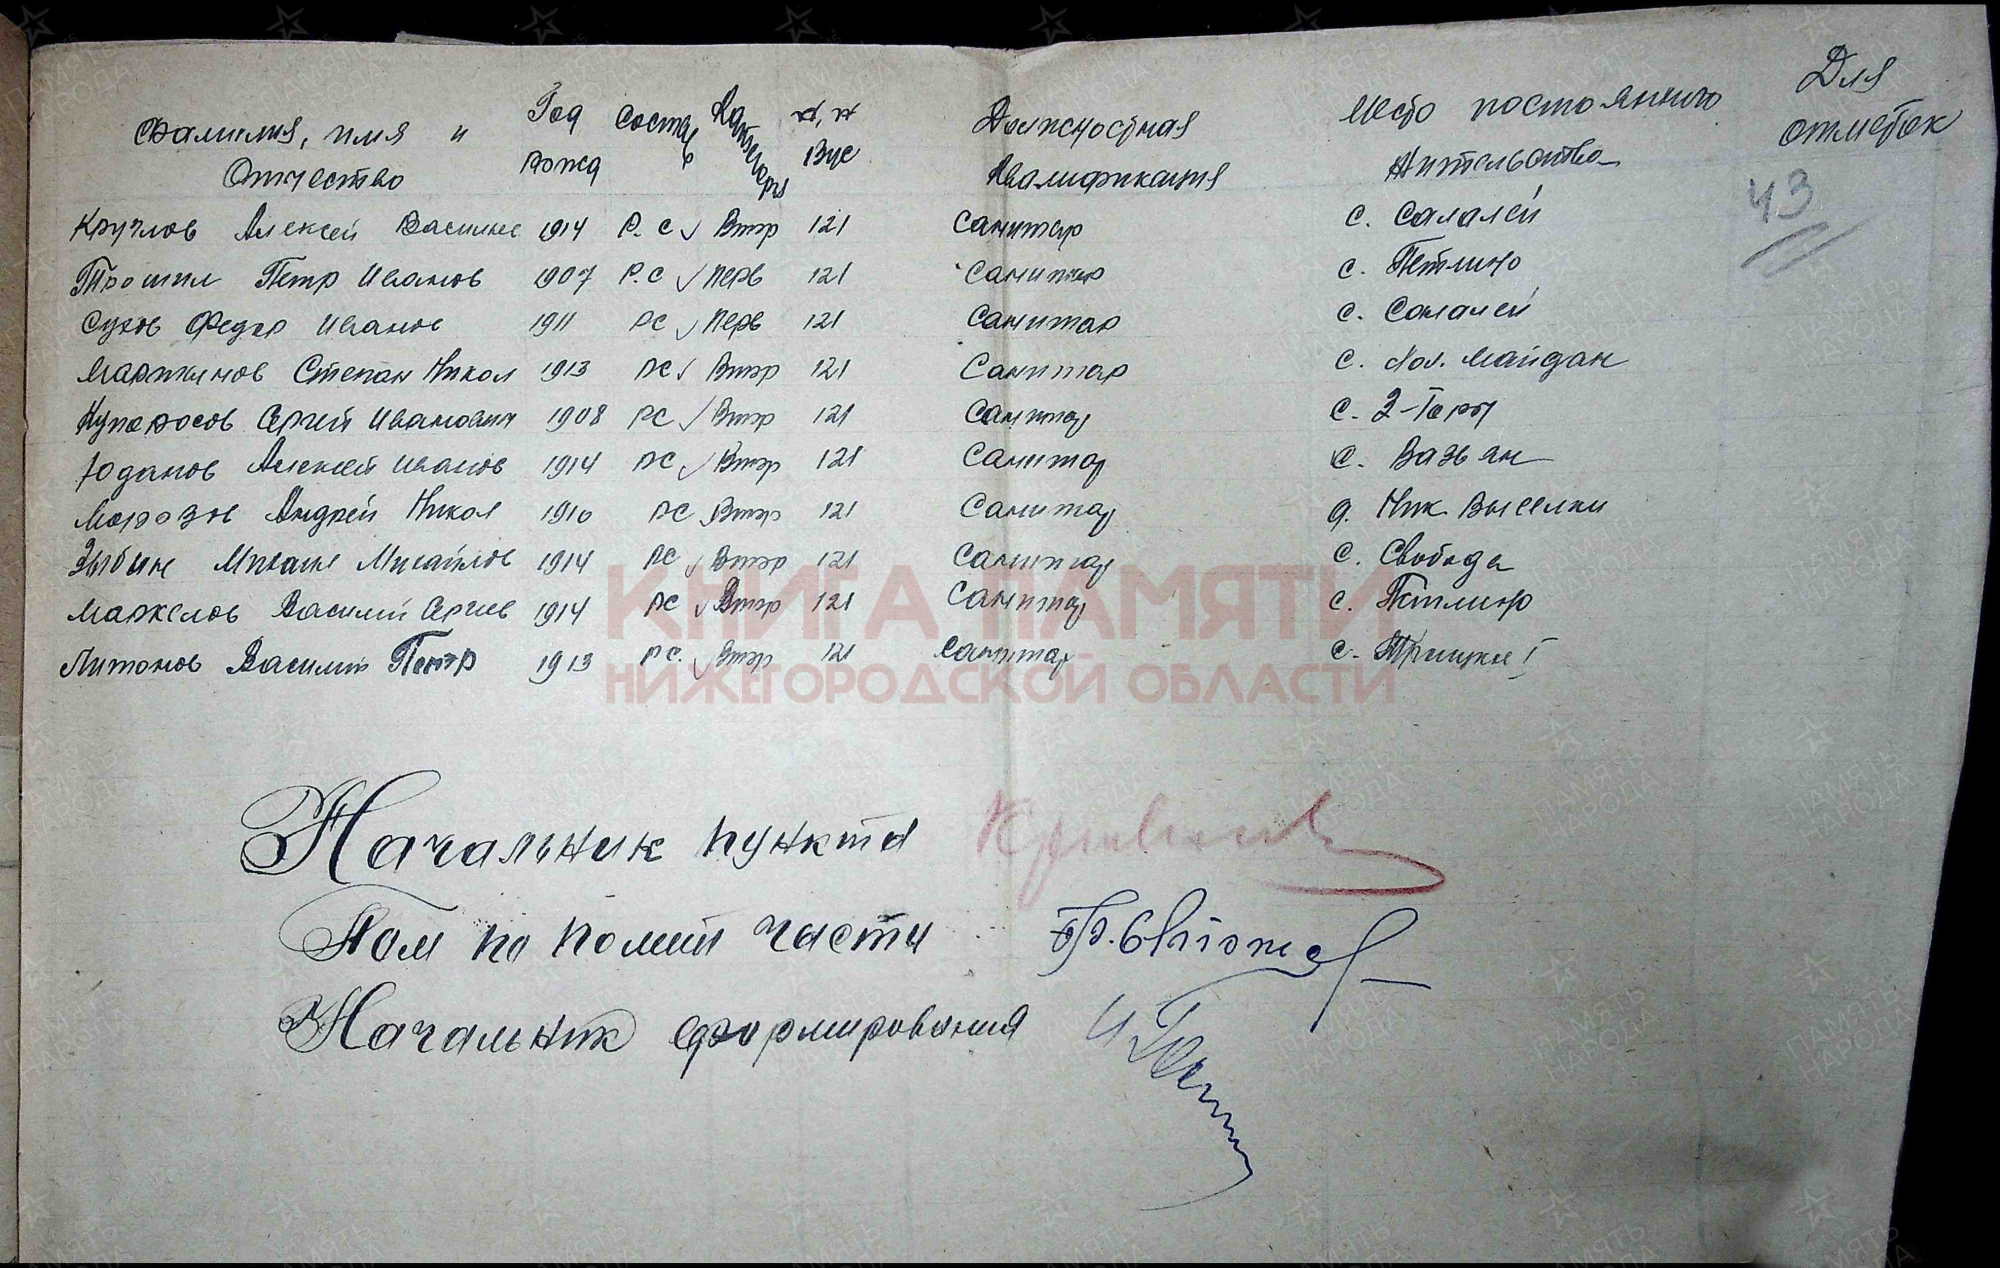 Фамилия, имя и Отчество Год рожд Состав Категория №,№ Вус Должностная Квалификация Место постоянного жительства Для отметок
43
Круглов Алексей Василье 1914 Р. С Втор 121 Санитар с. Салалей
Трошин Петр Иванов 1907 Р. С Перв 121 Санитар с. Петлино
Сухов Федор Иванов 1911 РС Перв 121 Санитар с. Салалей
Мартынов Степан Никол 1913 РС Втор 121 Санитар с. Пол. Майдан
Купоросов Сергей Иванович 1908 РС Втор 121 Санитар с. 2-Горы
Юданов Алексей Иванов 1914 РС Втор 121 Санитар с. Вазьян
Морозов Андрей Никол 1910 РС Втор 121 Санитар д. Ник. Выселки
Зыбин Михаил Михайлов 1914 РС Втор 121 Санитар с. Свобода
Маркелов Василий Сергеев 1914 РС Втор 121 Санитар с. Петлино
Антонов Василий Петр 1913 РС. Втор 121 Санитар с.
КНИГА ПАМЯТИ
НИЖЕГОРОДСКОЙ ОБЛАСТИ
Начальник пункта
Пом по полит части
Начальник формирования